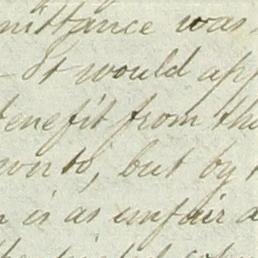 mittance was
- It would app
benefit from the
down to, but by t
n is as unfair a